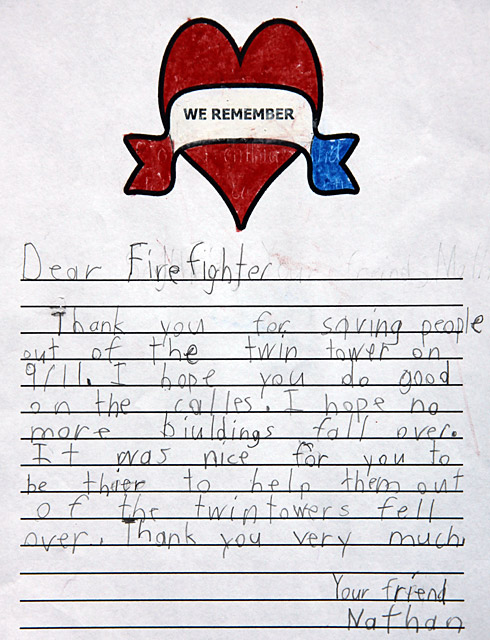 WE REMEMBER
Dear Firefighter
Thank you for saving people
out of the twin tower on
9/11. I hope you do good
on the calles. I hope no
more biuldings fall over.
It was nice for you to
be thier to help them out
of the twintowers fell
over. Thank you very much.
Your friend
Nathan